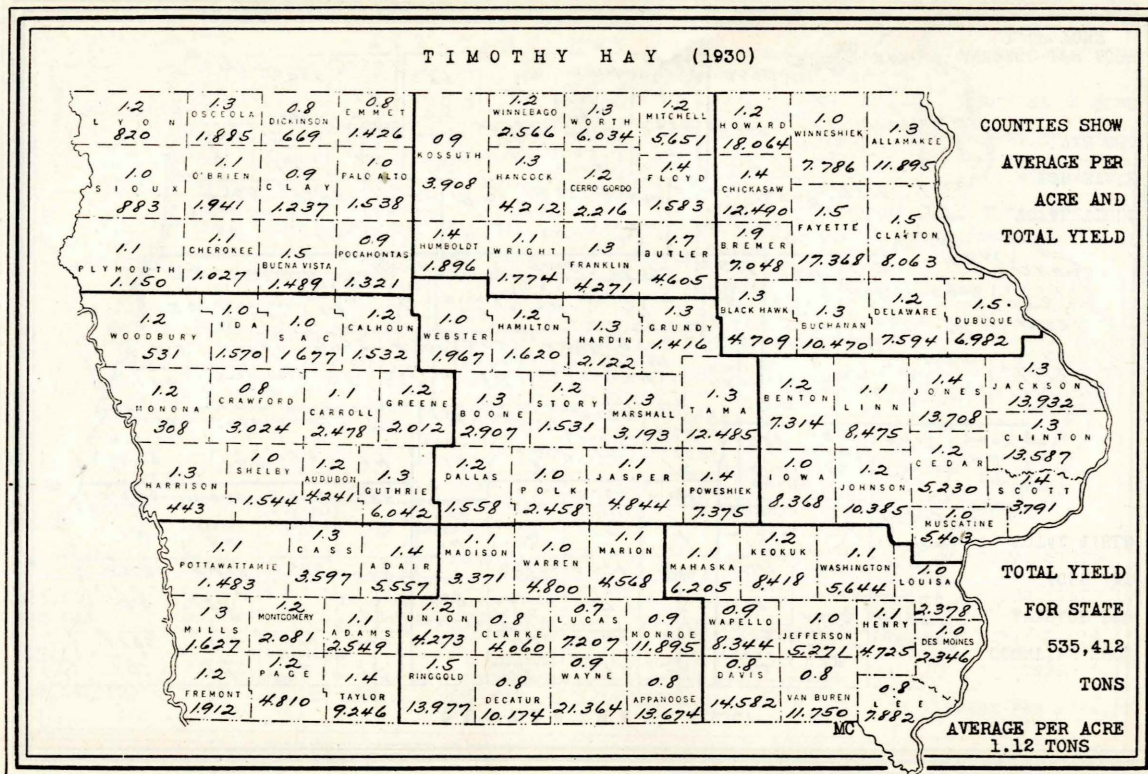 TIMOTHY HAY (1930)
COUNTIES SHOW
AVERAGE PER
ACRE AND
TOTAL YIELD
1.2
LYON
820
1.3
OSCEOLA
1.885
0.8
DICKINSON
669
0.8
EMMET
1.426
0.9
KOSSUTH
3.908
1.2
WINNEBAGO
2.566
1.3
WORTH
6.034
1.2
MITCHELL
5,651
1.2
HOWARD
18.064
1.0
WINNESHIEK
7.786
1.3
ALLAMAKEE
11.895
1.0
SIOUX
883
1.1
O'BRIEN
1.941
0.9
CLAY
1.237
1.0
PALO ALTO
1.538
1.3
HANCOCK
4.212
1.2
CERRO GORDO
2.216
1.4
FLOYD
1.583
1.4
CHICKASAW
12.490
1.5
FAYETTE
17.368
1.5
CLAYTON
8.063
1.1
PLYMOUTH
1.150
1.1
CHEROKEE
1.027
1.5
BUENA VISTA
1.489
0.9
POCAHONTAS
1.321
1.4
HUMBOLDT
1.896
1.1
WRIGHT
1.774
1.3
FRANKLIN
4.271
1.7
BUTLER
4.605
1.9
BREMER
7.048
1.2
WOODBURY
531
1.0
IDA
1.570
1.0
SAC
1677
1.2
CALHOUN
1.532
1.0
WEBSTER
1.967
1.2
HAMILTON
1.620
1.3
HARDIN
2.122
1.3
GRUNDY
1.416
1.3
BLACK HAWK
4.709
1.3
BUCHANAN
10.470
1.2
DELAWARE
7.594
1.5
DUBUQUE
6.982
1.2
MONONA
308
0.8
CRAWFORD
3.024
1.1
CARROLL
2.478
1.2
GREENE
2.012
1.3
BOONE
2.907
1.2
STORY
1.531
1.3
MARSHALL
3.193
1.3
TAMA
12.485
1.2
BENTON
7.314
1.1
LINN
8.475
1.4
JONES
13.708
1.3
JACKSON
13.932
1.3
CLINTON
13.587
1.3
HARRISON
443
1.0
SHELBY
1.544
1.2
AUDUBON
4.241
1.3
GUTHRIE
6.042
1.2
DALLAS
1.558
1.0
POLK
2.458
1.1
JASPER
4.844
1.4
POWESHIEK
7.375
1.0
IOWA
8.368
1.2
JOHNSON
10.385
1.2
CEDAR
5.230
1.4
SCOTT
3.791
1.0
MUSCATINE
5.403
1.1
POTTAWATTAMIE
1.483
1.3
CASS
3.597
1.4
ADAIR
5.557
1.1
MADISON
3.371
1.0
WARREN
4.800
1.1
MARION
4.568
1.1
MAHASKA
6.205
1.2
KEOKUK
8.418
1.1
WASHINGTON
5.644
1.0
LOUISA
2.378
1.3
MILLS
1.627
1.2
MONTGOMERY
2.081
1.1
ADAMS
2.549
1.2
UNION
4.273
0.8
CLARKE
4.060
0.7
LUCAS
7.207
0.9
MONROE
11.895
0.9
WAPELLO
8.344
1.0
JEFFERSON
5.271
1.1
HENRY
4.725
1.0
DES MOINES
2.346
1.2
FREMONT
1.912
1.2
PAGE
4.810
1.4
TAYLOR
9.246
1.5
RINGGOLD
13.977
0.8
DECATUR
10.174
0.9
WAYNE
21.364
0.8
APPANOOSE
13.674
0.8
DAVIS
14.582
0.8
VAN BUREN
11.750
0.8
LEE
7.882
TOTAL YIELD
FOR STATE
535,412
TONS
MC
AVERAGE PER ACRE
1.12 TONS